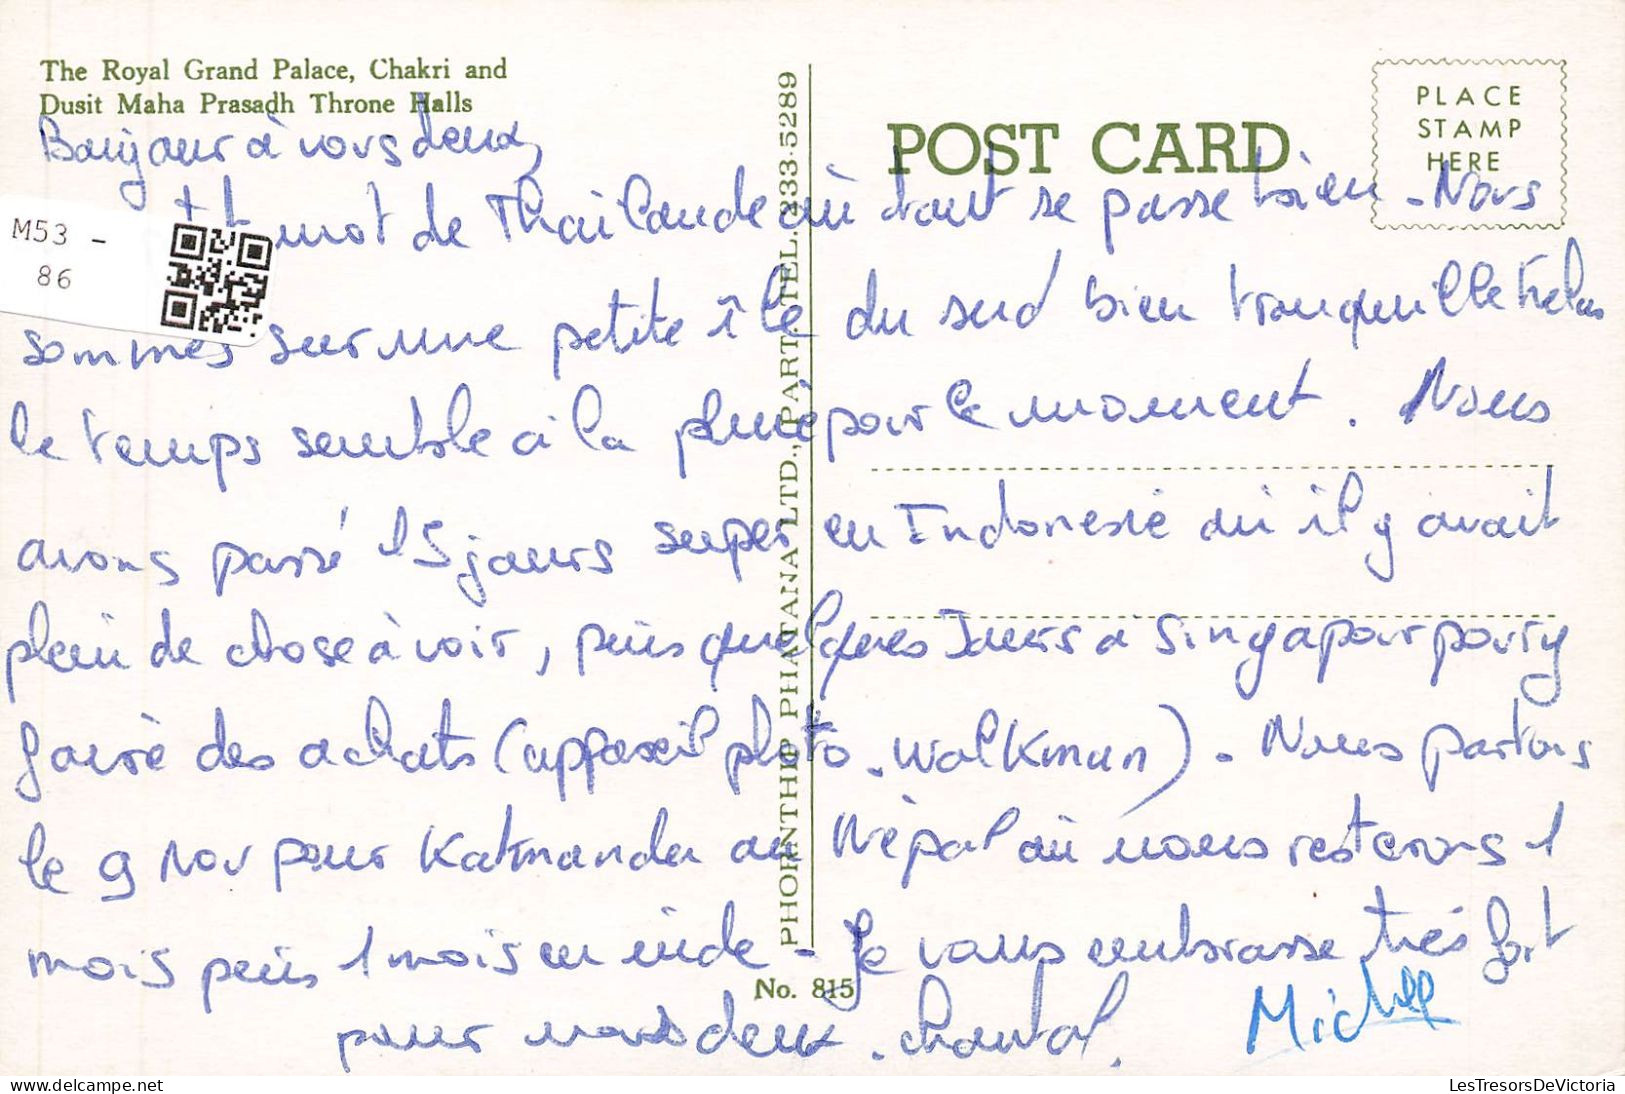 The Royal Grand Palace, Chakri and
Dusit Maha Prasadh Throne Halls
POST CARD
PLACE
STAMP
HERE
M53 -
86
PHORNTHIP PHATANA LTD., PART. TEL. 233-5289
Bonjour à vous deux,
mot de Thailande où tout se passe bien - Nous
sommes sur une petite île du sud bien tranquille hélas
le temps semble à la pluie pour le moment. Nous
avons passé 15 jours super en Indonesie où il y avait
plein de chose à voir, puis quelques Jours à Singapour pour y
faire des achats (appareil photo - walkman) - Nous partons
le 9 Nov pour Katmandu au Népal où nous resterons 1
mois puis 1 mois en inde - Je vous embrasse très fort
pour nous deux. Chantal.
Michel
No. 815
LesTresorsDeVictoria